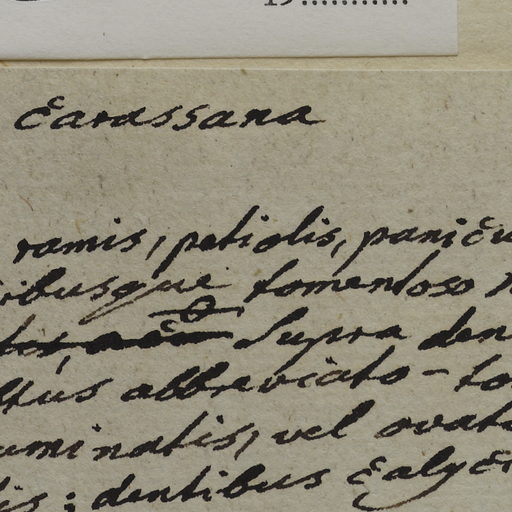 19............
Carassana
ramis, petiolis, panicu
ribusque tomentoso
supra den
ltus abbreviato-to
uminatis, vel ovat
lis; dentibus calyc